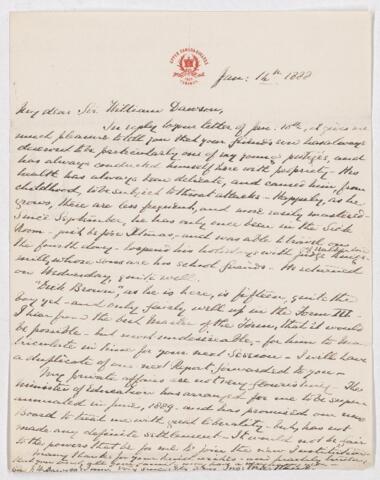 UPPER CANADA COLLEGE
TORONTO
Jan: 16th 1888
My dear Sir William Dawson,
In reply to your letter of Jan. 10th, it gives me
much pleasure to tell you that your friend's son has always
deemed to be particularly one of my young protégés, and
has always conducted himself here with propriety. His
health has always been delicate, and caused him, from
childhood, to be subject to throat attacks. Happily, as he
grows, these are less frequent, and more easily mastered.
Since September, he has only once been in the Sick
Room - just before Xmas - and was able to travel on
the fourth day - to spend his holidays with Judge
family, whose sons are his school friends. He returned
on Wednesday, quite well.
"Dick Brown", as he is here, is fifteen, quite the
boy yet - and only fairly well up in the Form III.
I hear from the best Master of the Form, that it would
be possible - but most undesirable - for him to Ma-
triculate in time for your next Session - I will have
a duplicate of our next Report forwarded to you -
My private affairs are not very flourishing - The
Minister of Education has arranged for me to be super-
annuated in June, 1889. and has promised our new
Board to treat me with great liberality - but, has not
made any definite settlement. It would not be fair
to the powers that be for me to join the new Institution.
Many thanks for your kind